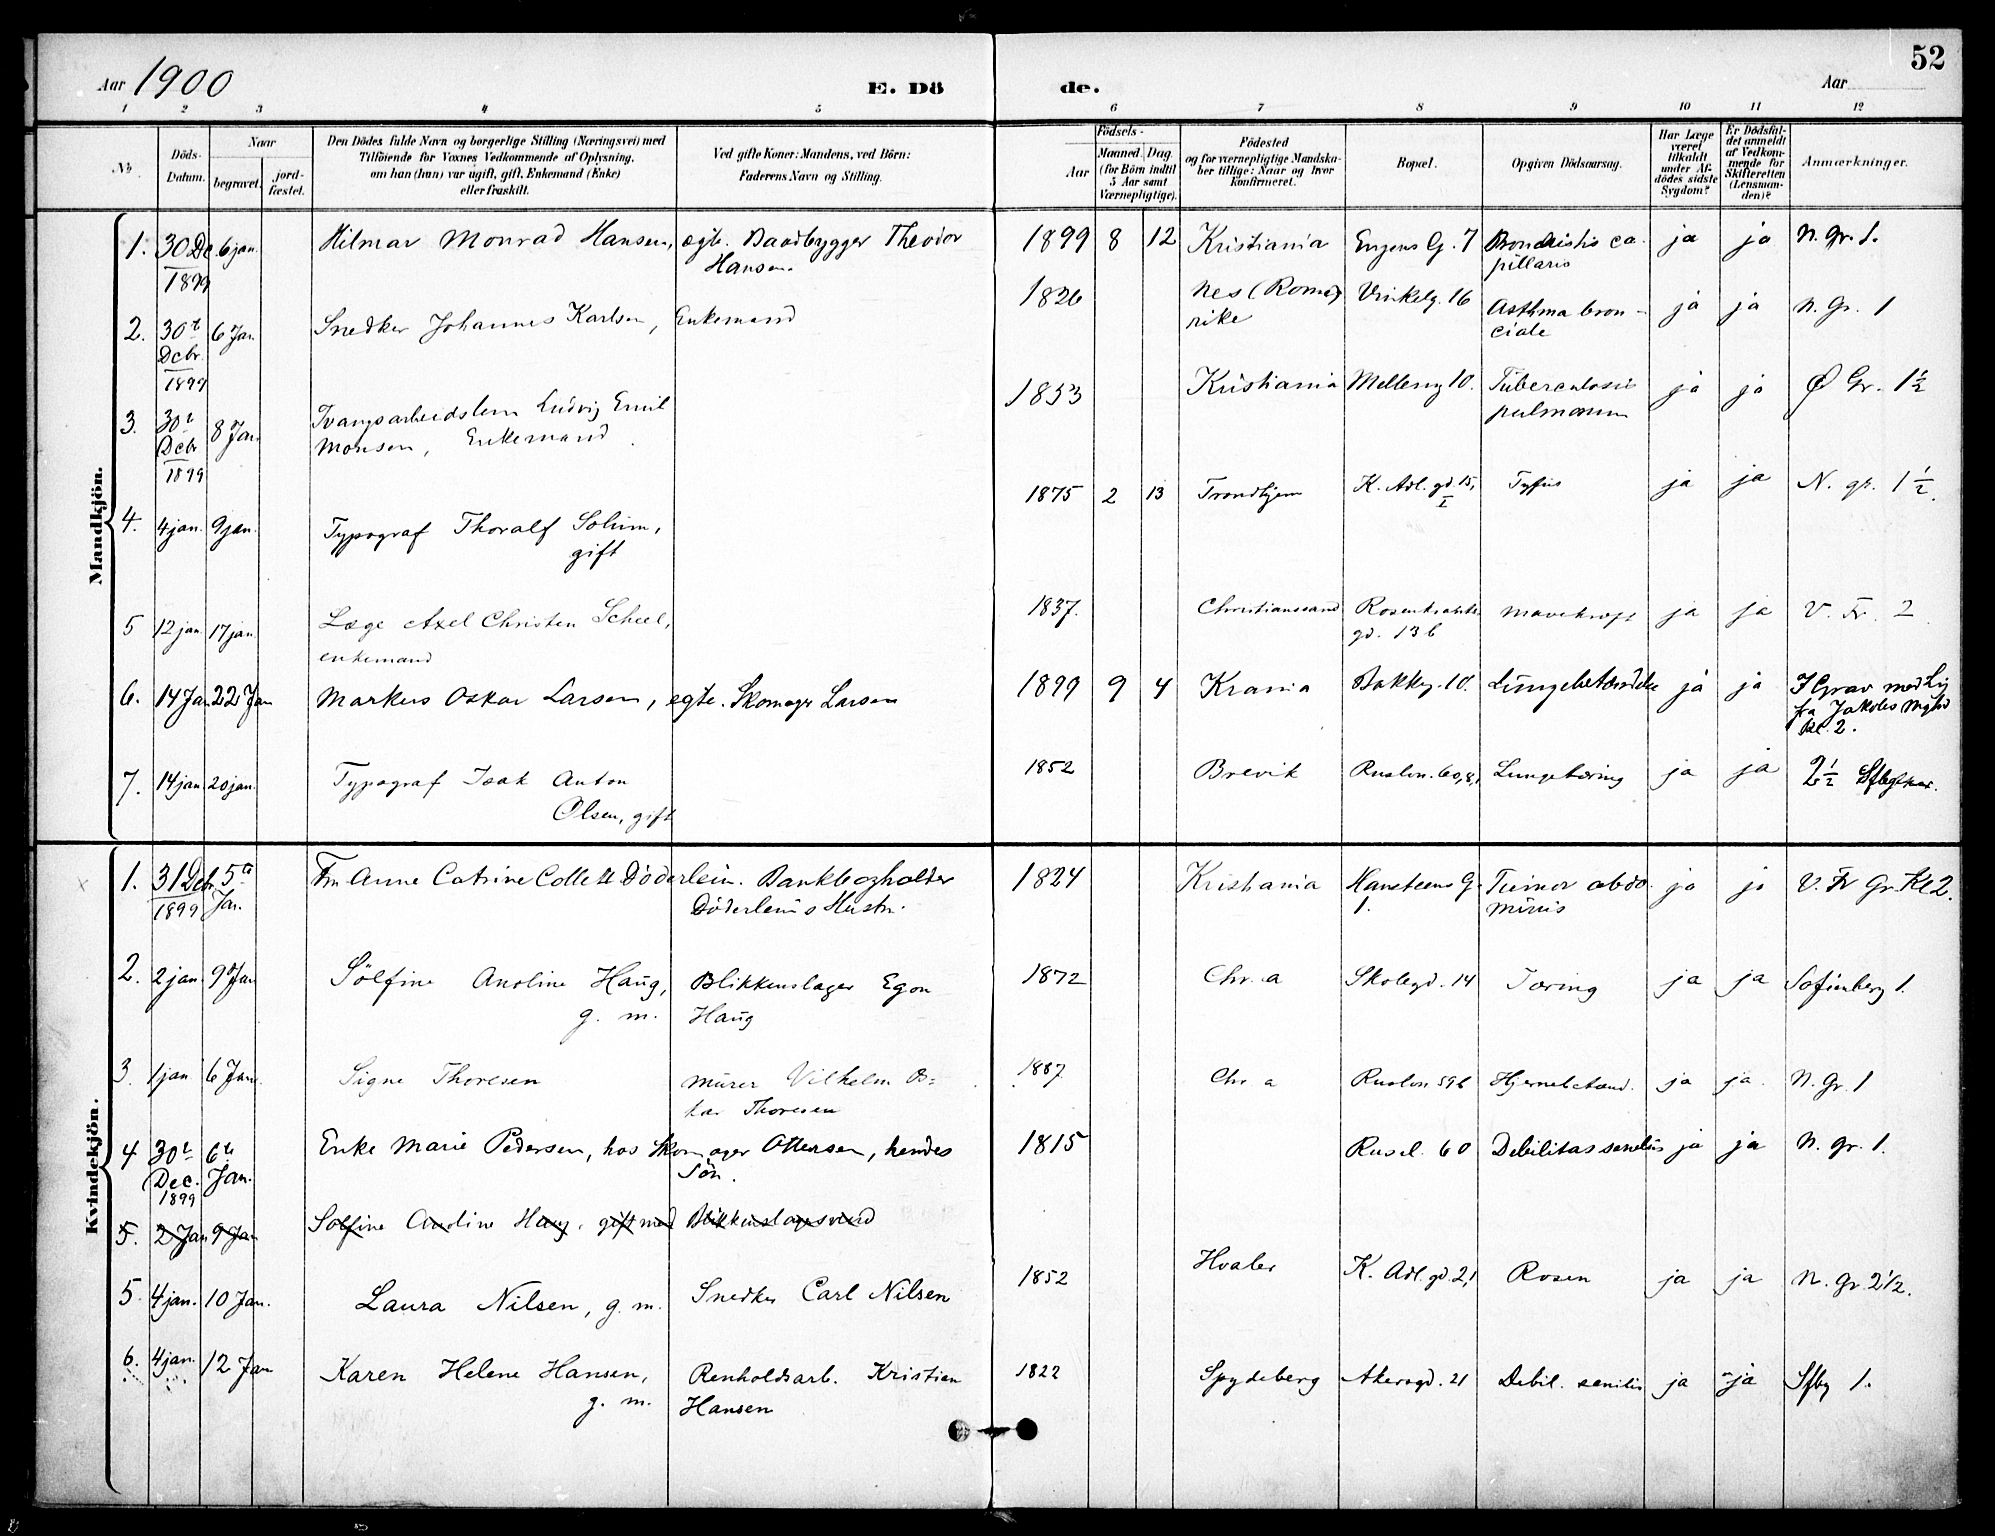 52
Aar 1900 E. Dö de. Aar
1 2 3 4 5 6 7 8 9 10 11 12
No. Döds-Datum. Naar begravet. jordfæstet. Den Dödes fulde Navn og borgerlige Stilling (Næringsvei) med Tilföiende for Voxnes Vedkommende af Oplysning, om han (hun) var ugift, gift, Enkemand (Enke) eller fraskilt. Ved gifte Koner: Mandens, ved Börn: Faderens Navn og Stilling. Födsels- Aar Maaned. Dag. (for Börn indtil 5 Aar samt Værnepligtige). Födested og for værnepligtige Mandskaber tillige: Naar og hvor konfirmeret. Bopæl. Opgiven Dödsaarsag. Har Læge været tilkaldt under Afdödes sidste Sygdom? Er Dödsfaldet anmeldt af Vedkommende for Skifteretten (Lensmanden)? Anmærkninger.
Mandkjön.
1. 30 Dc 1899 6 jan. Hilmar Monrad Hansen, ægte. Baadbygger Theodor Hansen. 1899 8 12 Kristiania Eugens G. 7 Bronchistis capillaris ja ja N. Gr. 1.
2. 30t Dcbr. 1899 6 Jan. Snedker Johannes Karlsen, Enkemand 1826 Nes (Romerike Vinkelg. 16 Asthma bronciale ja ja N. Gr. 1
3. 30t Dcbr 1899 8 Jan. Tvangsarbeidslem Ludvig Emil Monsen, Enkemand. 1853 Kristiania Mellemg 10. Tuberculosis pulmonum ja ja Ø Gr. 1½
4. 4 jan. 9 jan. Typograf Thoralf Solum, gift 1875 2 13 Trondhjem K. Adl. gd. 15, I Tyfus ja ja N. gr. 1½.
5 12 jan. 17 jan. Læge Axel Christen Scheel, enkemand 1837. Christianssand Rosenkrantz gd. 13 b Mavekræft ja ja V. Fr. 2
6. 14 Jan 22 Jan Markus Oskar Larsen, ægte. Skomager Larsen 1899 9 4 Krania Bakkg. 10. Lungebetændelse ja ja I Grav med Lig fra Jakobs Mghd Kl. 2.
7. 14 jan. 20 jan. Typograf Isak Anton Olsen, gift 1852 Brevik Ruslon. 60, 8, Lungetæring ja ja 2½
Kvindekjön.
1. 31 Dcbr. 1899 5te Jan. Fru Anne Catrine Collett Döderlein. Bankbogholder Döderleins Hustru. 1824 Kristiania Hansteens G. 1. Tumor abdominis ja ja V. Fr Gr. Kl 2.
2. 2 jan. 9 Jan Sölfine Anoline Haug, g. m. Blikkenslager Egon Haug 1872 Chr. a Skolegd. 14 Tæring ja ja Sofienberg 1.
3. 1 jan 6 Jan. Signe Thoresen Murer Vilhelm Os= kar Thoresen 1887. Chr. a Ruslon 59 b Hjernebetænd. ja ja. N. Gr. 1
4 30t Dec. 1899 6te Jan. Enke Marie Pedersen, hos Skomager Ottersen, hendes Sön. 1815 Rusel. 60 Debilitas senilis ja ja N. Gr. 1.
5. 2 Jan 9 Jan Solfine Anoline Haug, gift med Blikkenslagersvend
5. 4 jan. 10 Jan. Laura Nilsen, g. m. Snedker Carl Nilsen 1852 Hvaler K. Adl. gd. 21 Rosen ja ja N. Gr 2½.
6. 4 jan. 12 Jan Karen Helene Hansen, g. m. Renholdsarb. Kristian Hansen 1822 Spydeberg Akersgd. 21 Debil. senilis ja ja Sfbg 1.